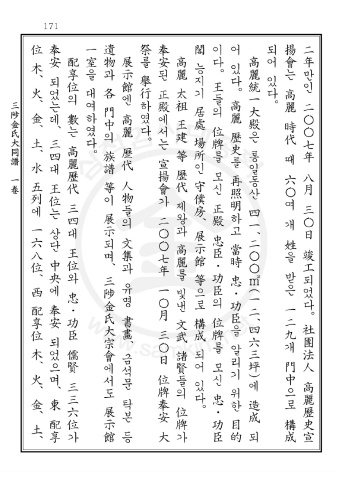 171
二年만인 二〇〇七年 八月 三〇日 竣工되었다. 社團法人 高麗歷史宣
揚會는 高麗 時代 때 六〇여 개 姓을 받은 一二九개 門中으로 構成
되어 있다.
高麗統一大殿은 통일동산 四一、二〇〇㎡(一二、四六三坪)에 造成 되
어 있다. 高麗 歷史를 再照明하고 當時 忠・功臣을 알리기 위한 目的
이다. 王들의 位牌를 모신 正殿 忠臣・功臣의 位牌를 모신 忠・功臣
閣 능지기 居處 場所인 守僕房、展示館 等으로 構成 되어 있다.
高麗 太祖 王建 等 歷代 제왕과 高麗를 빛낸 文武 諸賢들의 位牌가
奉安된 正殿에서는 宣揚會가 二〇〇七年 一〇月 三〇日 位牌奉安 大
祭를 擧行하였다.
展示館엔 高麗 歷代 人物들의 文集과 유명 書畵、금석문 탁본 등
遺物과 各 門中의 族譜 等이 展示되며、三陟金氏大宗會에서도 展示館
一室을 대여하였다.
配享位의 數는 高麗歷代 三四대 王位와 忠・功臣 儒賢 三三六位가
奉安 되었는데、三四대 王位는 상단 中央에 奉安 되었으며、東 配享
位 木、火、金、土、水 五列에 一六八位、西 配享位 木、火、金、土、
三陟金氏大同譜 一卷